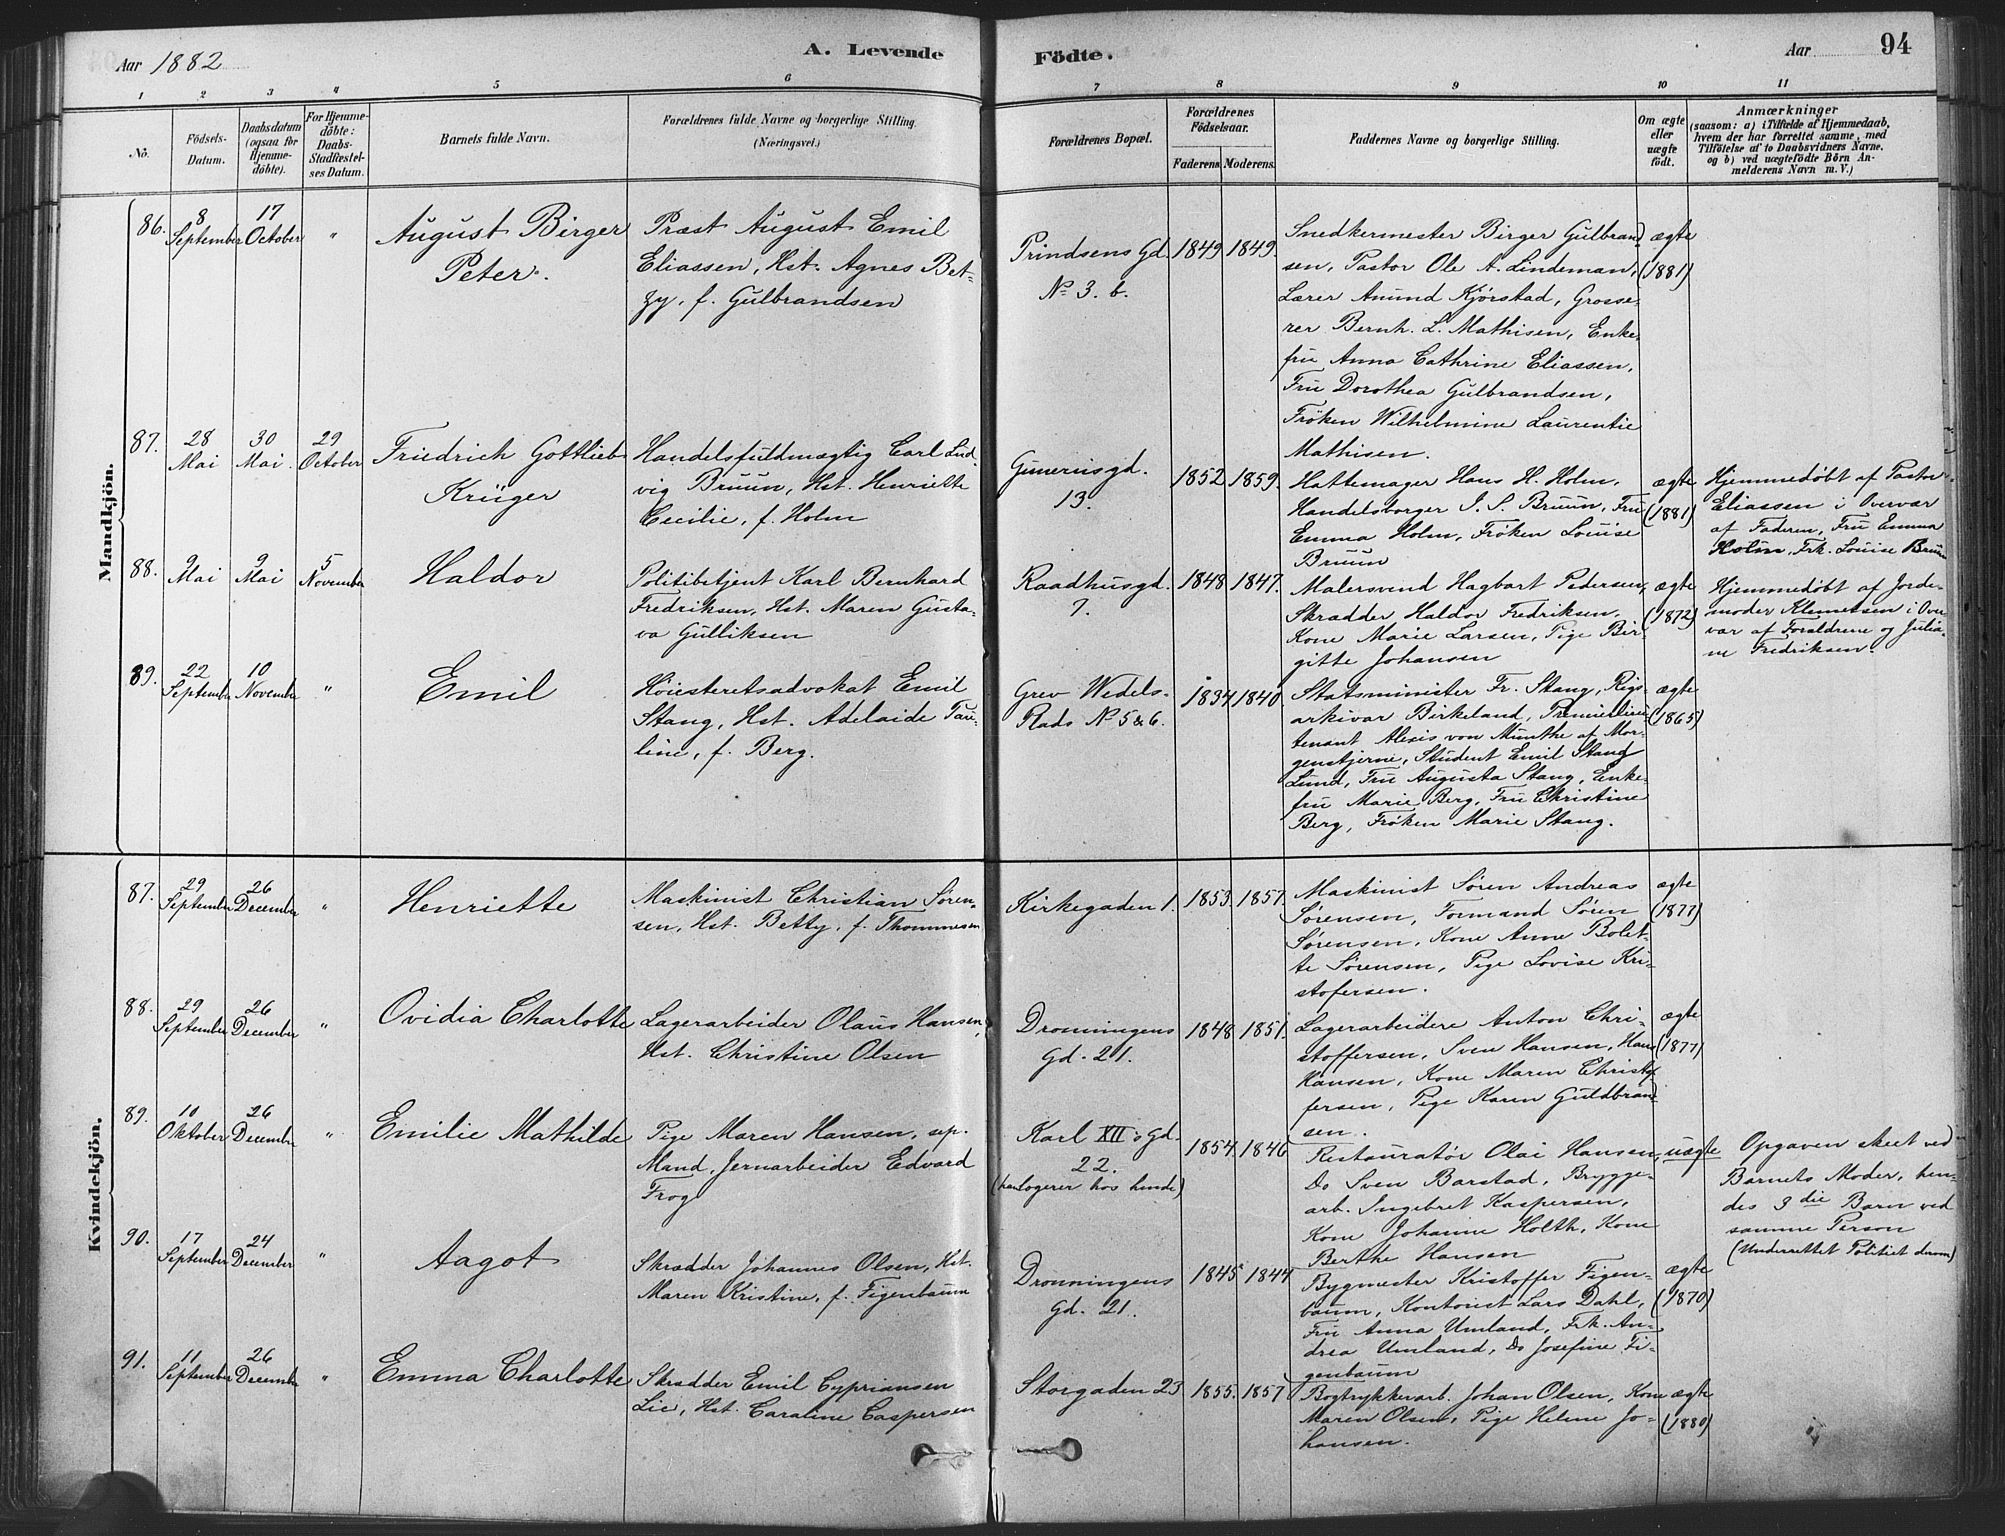 Aar 1882
A. Levende
Födte.
Aar
94
1 2 3 4 5 6 7 8 9 10 11
No.
Födsels-
Datum.
Daabsdatum
(ogsaa for
Hjemme-
döbte).
For Hjemme-
döbte:
Daabs-
Stadfæstel-
ses Datum.
Barnets fulde Navn.
Forældrenes fulde Navne og borgerlige Stilling.
(Næringsvei.)
Forældrenes Bopæl.
Forældrenes
Födselsaar.
Faderens. Moderens.
Faddernes Navne og borgerlige Stilling.
Om ægte
eller
uægte
födt.
Anmærkninger
(saasom: a) i Tilfælde af Hjemmedaab,
hvem der har forrettet samme, med
Tilföielse af to Daabsvidners Navne.
og b) ved uægtefödte Börn An-
melderens Navn m. V.)
Mandkjön.
86.
8
September
17
October
"
August Birger
Peter.
Præst August Emil
Eliassen, Hst. Agnes Bet-
zy, f. Gulbrandsen
Prindsens Gd.
No 3. b.
1849 1849.
Snedkermester Birger Gulbrand
sen, Pastor Ole A. Lindeman,
Lærer Anund Kjørstad, Grosse-
rer Bernh. L. Mathisen, Enke-
fru Anna Cathrine Eliassen,
Fru Dorothea Gulbrandsen,
Frøken Wilhelmine Laurentie
Mathisen.
ægte
(1881)
87.
28
Mai
30
Mai.
29
October
Friedrich Gottlieb
Krüger
Handelsfuldmægtig Carl Lud-
vig Bruun, Hst. Henriette
Cecilie, f. Holm
Gunerusgd.
13.
1852 1859.
Hattemager Hans H. Holm,
Handelsborger J. S. Bruun, Fru
Emma Holm, Frøken Louise
Bruun
ægte
(1881)
Hjemmedøbt af Pastor
Eliassen i Overvær
af Faderen, Fru Emma
Holm, Frk. Louise Bruun
88.
9
Mai
9
Mai
5
November
Haldor
Politibetjent Karl Bernhard
Fredriksen, Hst. Maren Gusta-
va Gulliksen
Raadhusgd.
7.
1848 1847.
Malersvend Hagbart Pedersen,
Skrædder Haldor Fredriksen,
Kone Marie Larsen, Pige Bir-
gitte Johansen
ægte
(1872)
Hjemmedøbt af Jorde-
moder Klemetsen i Over-
vær af Forældrene og Julia-
ne Fredriksen.
89.
22
September
10
November
"
Emil
Høiesteretsadvokat Emil
Stang, Hst. Adelaide Pau-
line, f. Berg.
Grev Wedels-
Plads No 5 & 6.
1834 1840.
Statsminister Fr. Stang, Rigs-
arkivar Birkeland, Premierlieu-
tenant Alexis von Munthe af Mor-
genstjerne, Student Emil Stang
Lund, Fru Augusta Stang, Enke-
fru Marie Berg, Fru Christine
Berg, Frøken Marie Stang.
ægte
(1865)
Kvindekjön.
87.
29
September
26
December
"
Henriette
Maskinist Christian Søren-
sen, Hst. Betty, f. Thommesen
Kirkegaden 1.
1853. 1857.
Maskinist Søren Andreas
Sørensen, Formand Søren
Sørensen, Kone Anne Bolet-
te Sørensen, Pige Lovise Kri-
stofersen.
ægte
(1877)
88.
29
September
26
December
"
Ovidia Charlotte
Lagerarbeider Olaus Hansen,
Hst. Christine Olsen
Dronningens
Gd. 21.
1848 1851.
Lagerarbeidere Anton Chri-
stoffersen, Sven Hansen, Hans
Hansen, Kone Maren Christof
fersen, Pige Karen Guldbrand
sen.
ægte
(1877)
89.
10
Oktober
26
December
"
Emilie Mathilde
Pige Maren Hansen, sep.
Mand, Jernarbeider Edvard
Frog
Karl XII's Gd.
22.
(han logerer hos hende)
1854. 1846
Restauratør Olai Hansen,
Do Sven Barstad, Brygge-
arb. Ingebret Kaspersen,
Kone Johanne Holth, Kone
Berthe Hansen
uægte
Opgaven skeet ved
Barnets Moder, hen-
des 3die Barn ved
samme Person
(Underrettet Politiet derom)
90.
17
September
24
December
"
Aagot
Skrædder Johannes Olsen, Hst.
Maren Kristine, f. Figenbaum
Dronningens
Gd. 21.
1845 1844
Bygmester Kristoffer Figen-
baum, Kontorist Lars Dahl,
Fru Anna Umland, Frk. An-
drea Umland, Do Josefine Fi-
genbaum
ægte
(1870)
91.
11
September
26
December
"
Emma Charlotte
Skrædder Emil Cypriansen
Lie, Hst. Caroline Caspersen
Storgaden 23
1855. 1857
Bogtrykkerarb. Johan Olsen, Kone
Maren Olsen, Pige Helene Jo-
hansen.
ægte
(1880)